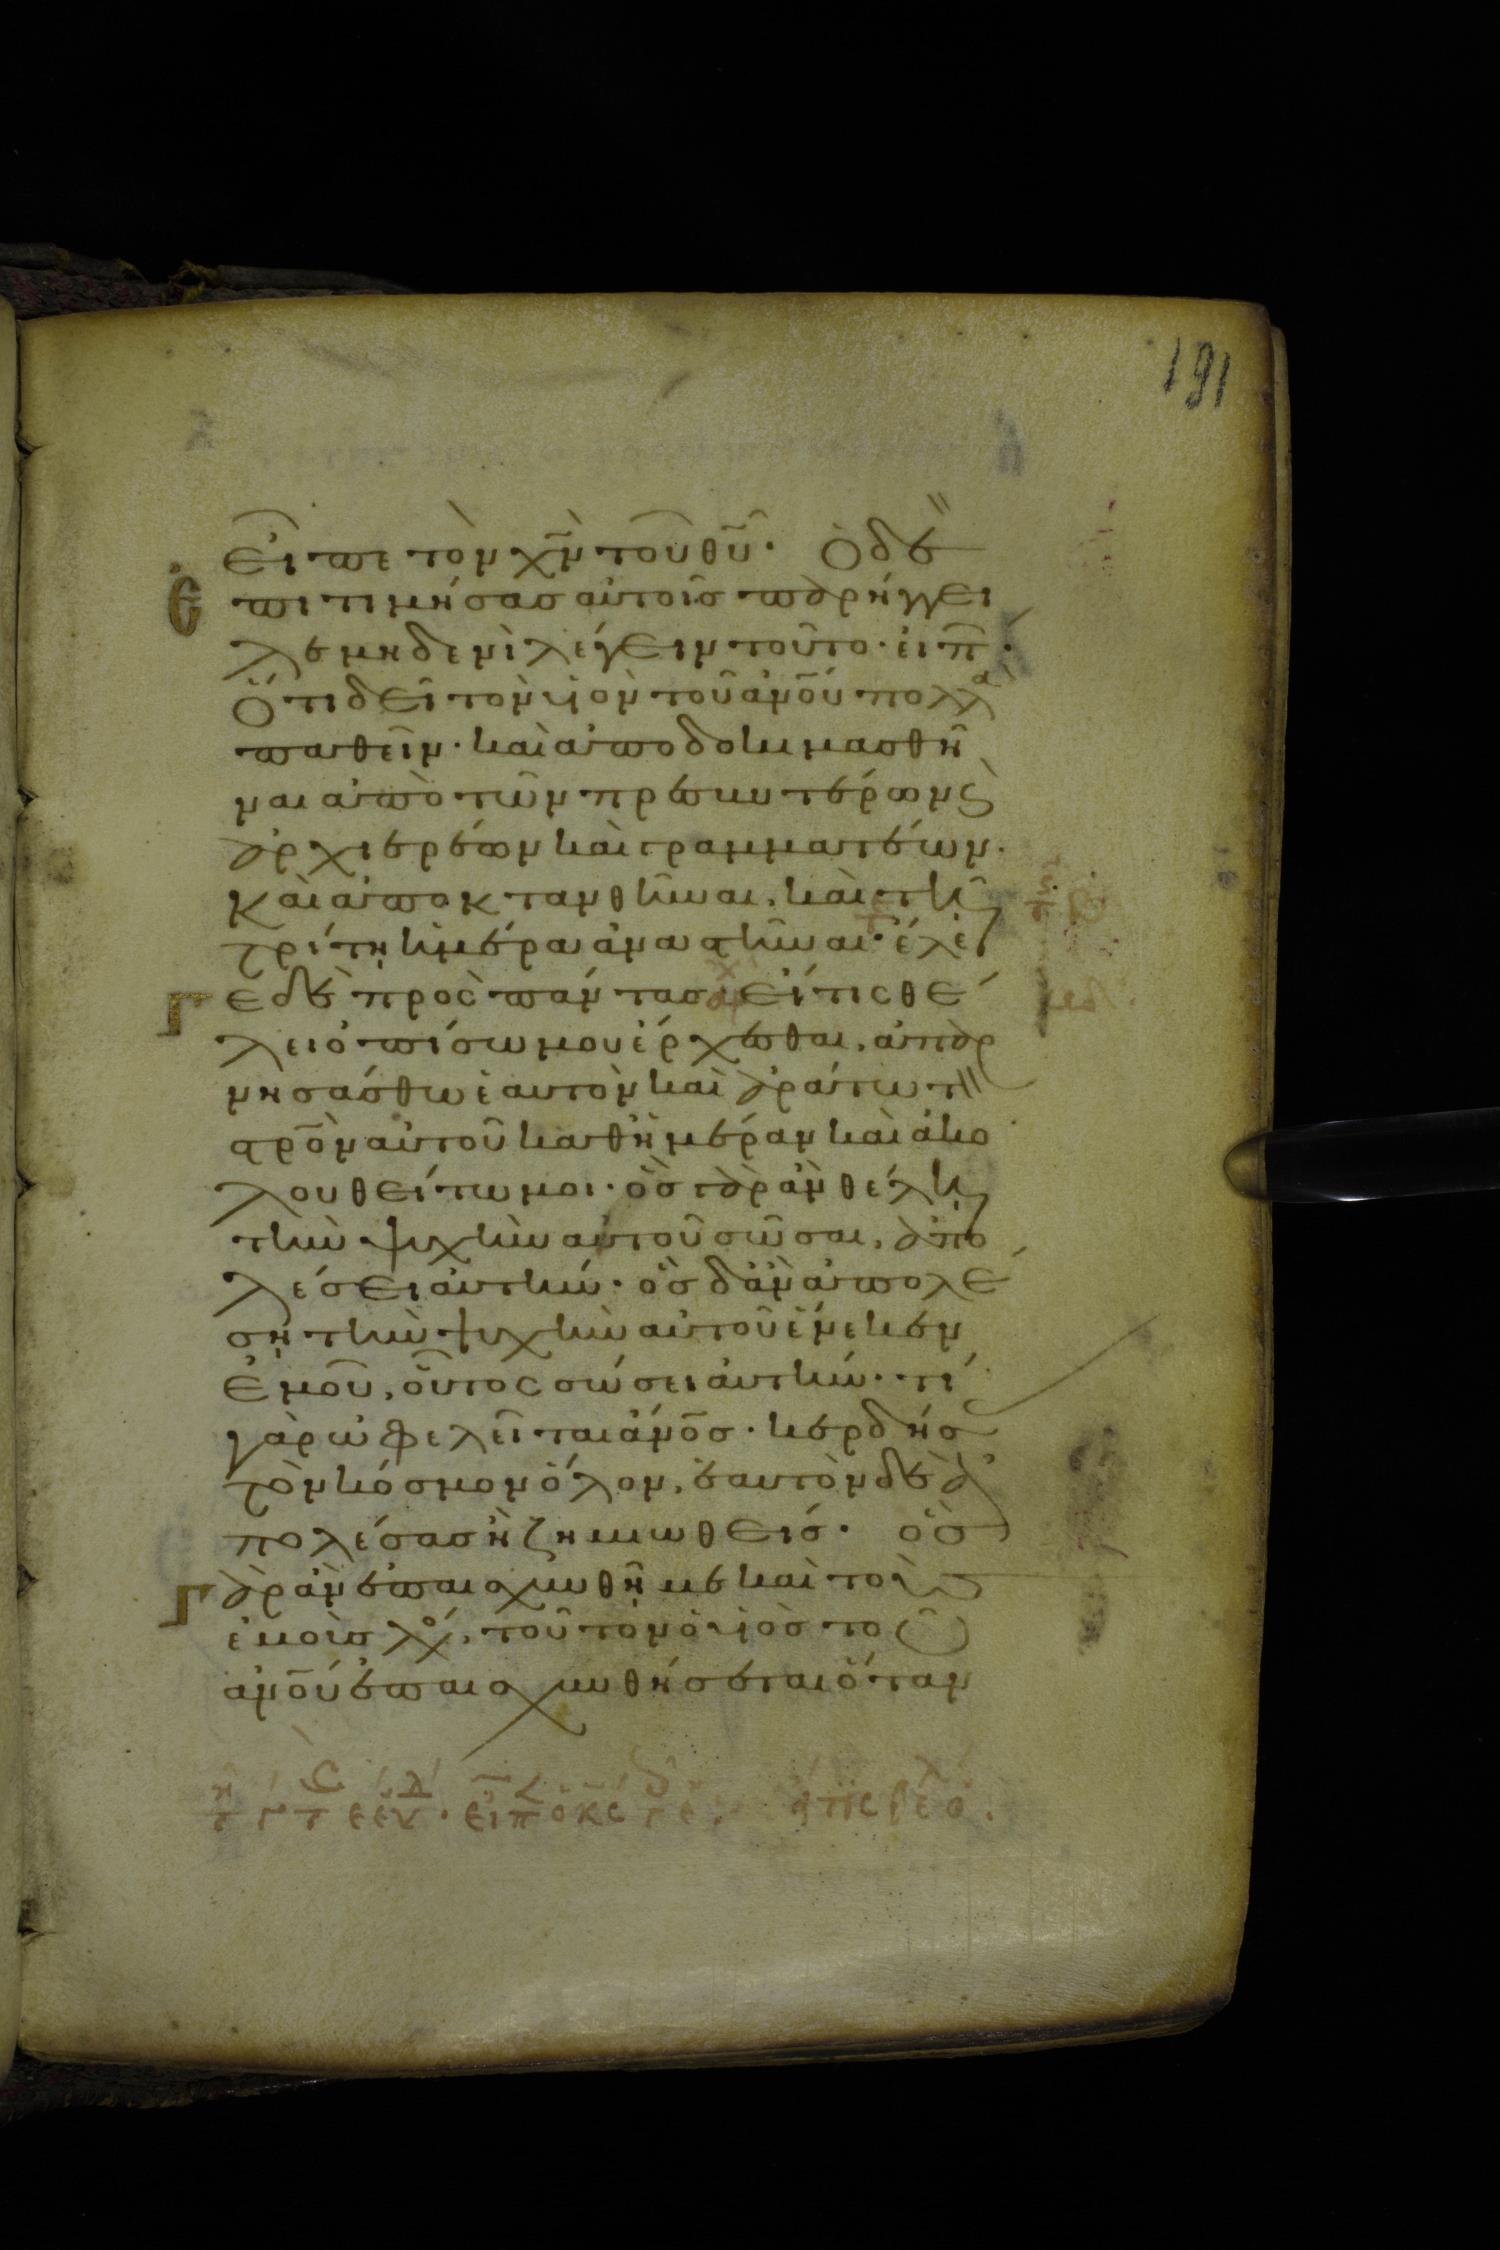 191
εἶπε τὸν χν̅ τοῦ θυ̅· Ὁ δὲ
ἐπιτιμήσας αὐτοῖς παρήγγει
λε μηδενὶ λέγειν τοῦτο· εἰπ̅·
Ὅτι δεῖ τὸν υἱὸν τοῦ ἀνο̅υ πολλὰ
παθεῖν· καὶ ἀποδοκιμασθῆ
ναι ἀπὸ τῶν πρεσβυτέρων καὶ
ἀρχιερέων καὶ γραμματέων·
καὶ ἀποκτανθῆναι, καὶ τῆ
τρίτη ἡμέρα ἀναστῆναι· ἔλεγ
ε δὲ πρὸς πάντας εἴ τις θέ
λει ὀπίσω μου ἔρχεσθαι, ἀπαρ
νησάσθω ἑαυτὸν καὶ ἀράτω τὸν
στρο̅ν αὐτοῦ καθ ἡμέραν καὶ ἀκο
λουθείτω μοι· ὃς γὰρ ἂν θέλη
τὴν ψυχὴν αὐτοῦ σῶσαι, ἀπο
λέσει αὐτήν· ὃς δ ἂν ἀπολέ
ση τὴν ψυχὴν αὐτοῦ ἕνεκεν
ἐμοῦ, οὗτος σώσει αὐτήν· τί
γὰρ ὠφελεῖται ἀνο̅ς· κερδήσας
τὸν κόσμον ὅλον, ἑαυτὸν δὲ ἀ
πολέσας ἢ ζημιωθείς· ὃς
γὰρ ἂν ἐπαισχυνθῆ με καὶ τοὺς
ἐμοὺς λό, τοῦτον ὁ υἱὸς τοῦ
ἀνο̅υ ἐπαισχυνθήσεται ὅταν